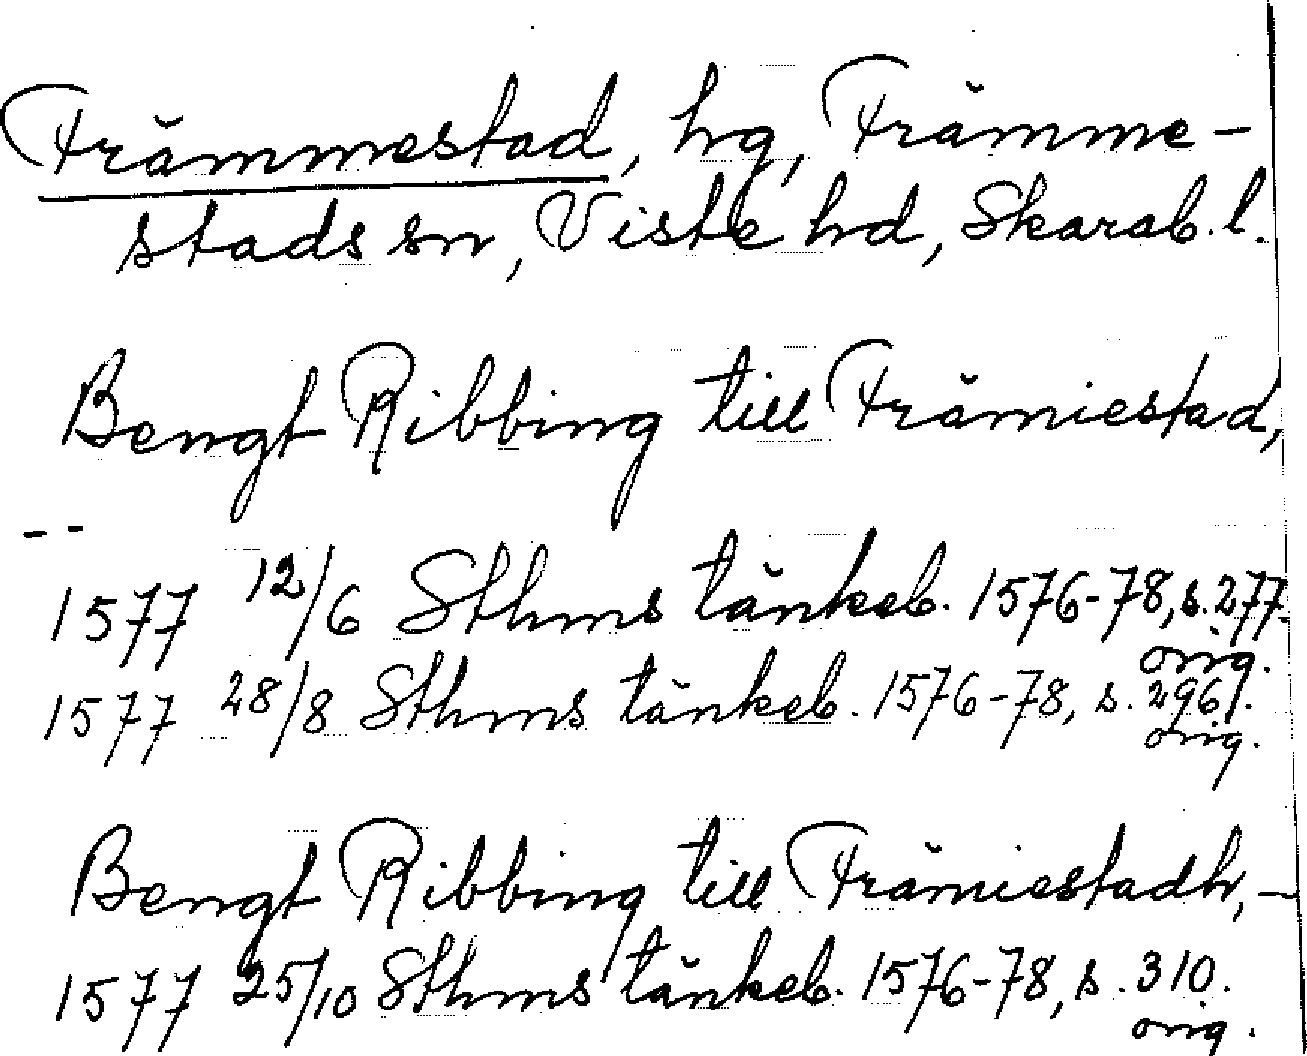 Främmestad, hg, Främme-
stads sn, Viste hd, Skarab. l.
Bengt Ribbing till Främiestad,
--
1577 12/6 Sthms tänkeb. 1576-78, s. 277.
orig.
1577 28/8 Sthms tänkeb. 1576-78, s. 296f.
orig.
Bengt Ribbing till Främiestadh, -
1577 25/10 Sthms tänkeb. 1576-78, s. 310.
orig.